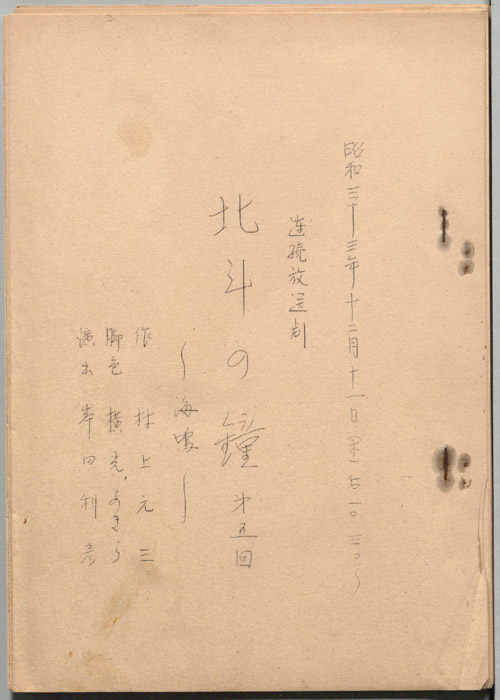 昭和三十三年十二月十一日(木)后一〇.三〇~
連続放送劇
北斗の鐘 第五回
~海鳴~
作 村上元三
脚色 横光あきら
演出 岸田利彦